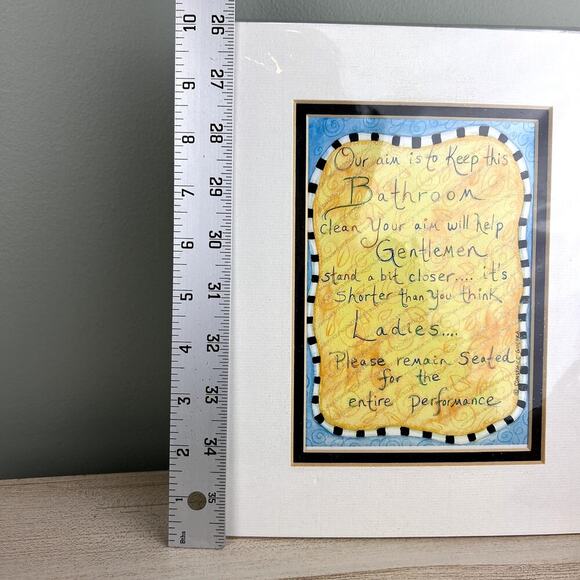 10 26
9 27
8 28
7 29
6 30
5 31
4 32
3 33
2 34
1 35
8ths
Our aim is to Keep this
Bathroom
clean Your aim will help
Gentlemen
stand a bit closer.... it's
shorter than You think
Ladies....
Please remain Seated
for the
entire performance